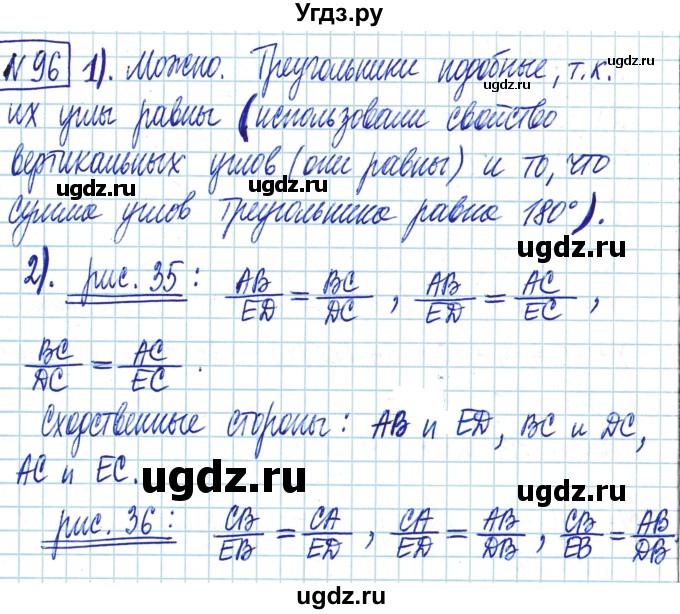 Угдз.ру
№96 1). Можно. Треугольники подобные, т.к.
ugdz.ru ugdz.ru
их углы равны (использовали свойство
ugdz.ru
вертикальных углов (они равны) и то, что
ugdz.ru ugdz.ru
сумма углов треугольника равна 180°).
ugdz.ru
2). рис. 35: AB/ED = BC/DC, AB/ED = AC/EC,
BC/DC = AC/EC.
Сходственные стороны: AB и ED, BC и DC,
AC и EC.
ugdz.ru ugdz.ru
рис. 36: CB/EB = CA/ED, CA/ED = AB/DB, CB/EB = AB/DB.
ugdz.ru ugdz.ru